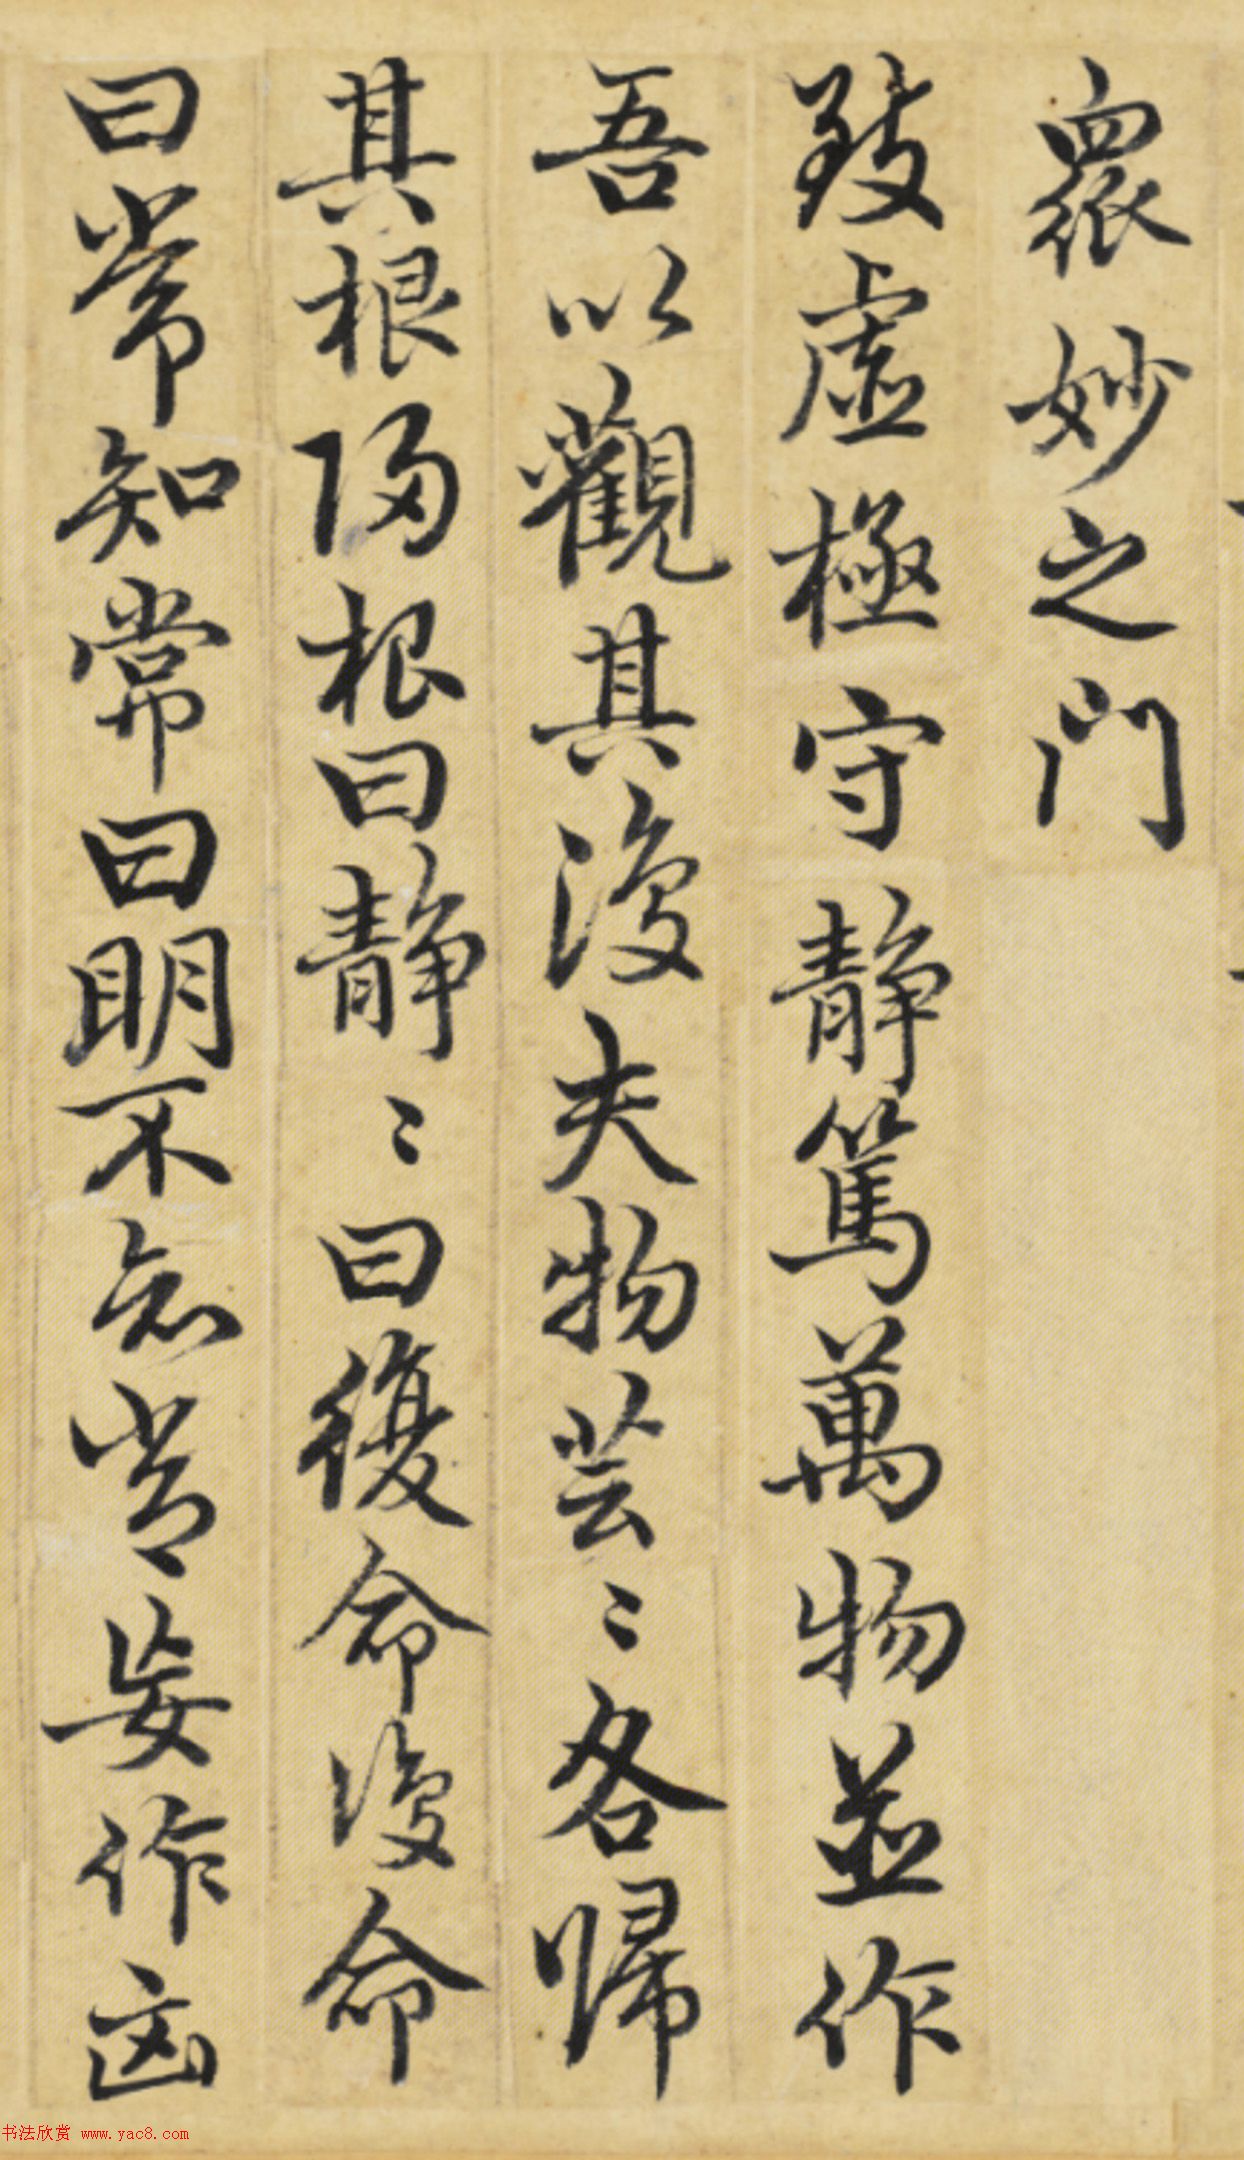 眾妙之門
致虛極守靜篤萬物並作
吾以觀其復夫物芸〻各歸
其根歸根曰靜〻曰復命復命
曰常知常曰明不知常妄作凶
书法欣赏 www.yac8.com